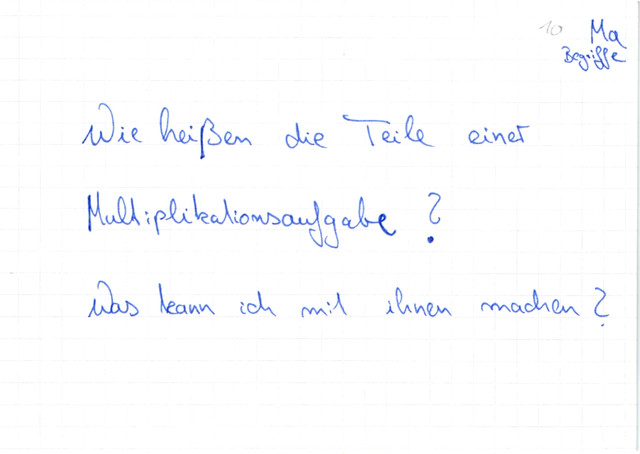 10 Ma
Begriffe
Wie heißen die Teile einer
Multiplikationsaufgabe ?
Was kann ich mit ihnen machen ?